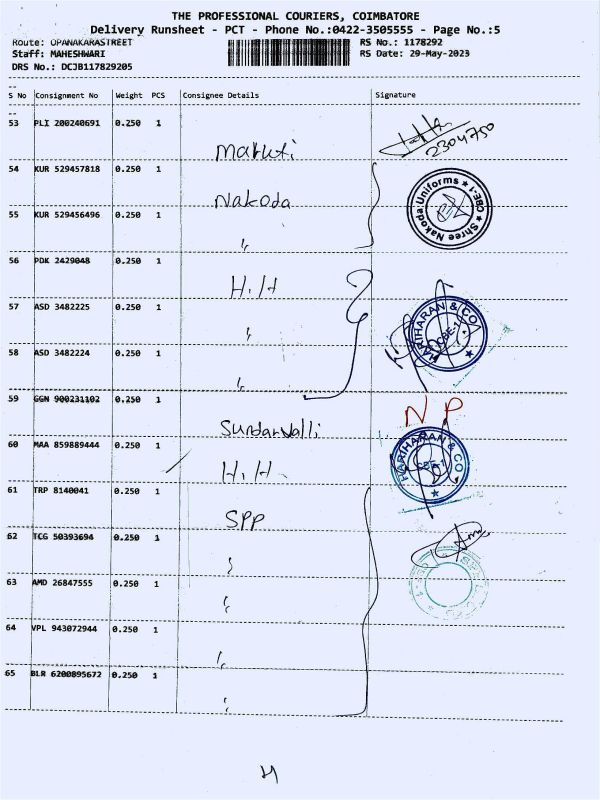 THE PROFESSIONAL COURIERS, COIMBATORE
Delivery Runsheet - PCT - Phone No.:0422-3505555 - Page No.:5
Route: OPANAKARASTREET RS No.: 1178292
Staff: MAHESHWARI RS Date: 29-May-2023
DRS No.: DCJB117829205
--
S No Consignment No Weight PCS Consignee Details Signature
--
53 PLI 200240691 0.250 1
Maruti
2304750
54 KUR 529457818 0.250 1
Nakoda
Shree Nakoda Uniforms ★ CBE-1 ★
55 KUR 529456496 0.250 1
"
56 PDK 2429048 0.250 1
H.H
57 ASD 3482225 0.250 1
"
HARIHARAN & CO
CBE-1
★
58 ASD 3482224 0.250 1
"
59 GGN 900231102 0.250 1
NP
Sundarvalli
60 MAA 859889444 0.250 1
H.H.
HARIHARAN & CO
CBE-1
★
61 TRP 8140041 0.250 1
SPP
62 TCG 50393694 0.250 1
"
63 AMD 26847555 0.250 1
"
64 VPL 943072944 0.250 1
"
65 BLR 6200895672 0.250 1
"